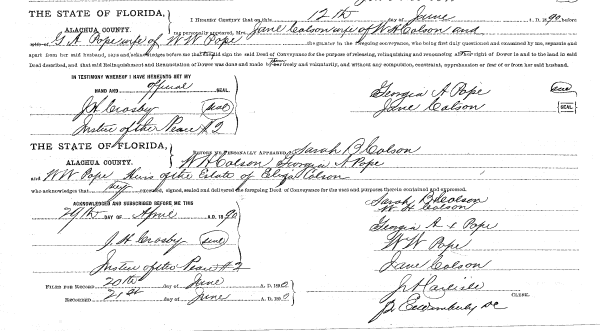 THE STATE OF FLORIDA,
ALACHUA COUNTY.
I HEREBY CERTIFY that on this 12th day of June A. D. 1890 before
me personally appeared, Mrs. Jane Colson wife of W H Colson and
G. A. Pope wife of W W Pope the grantor in the foregoing conveyance, who being first duly questioned and examined by me, separate and
apart from her said husband, says and acknowledges before me that she did sign the said Deed of Conveyance for the purpose of releasing, relinquishing and renouncing all her right of Dower in and to the land in said
Deed described, and that said Relinquishment and Renunciation of Dower was done and made by them freely and voluntarily, and without any compulsion, constraint, apprehension or fear of or from her said husband.
IN TESTIMONY WHEREOF I HAVE HEREUNTO SET MY
HAND AND official SEAL
J. H. Crosby (Seal)
Justice of the Peace # 2
Georgia A Pope (Seal)
Jane Colson SEAL
THE STATE OF FLORIDA,
ALACHUA COUNTY.
BEFORE ME PERSONALLY APPEARED, Sarah B Colson
W H Colson Georgia A Pope
and W W Pope Heirs of the Estate of Eliza Colson
who acknowledges that they executed, signed, sealed and delivered the foregoing Deed of Conveyance for the uses and purposes therein contained and expressed.
ACKNOWLEDGED AND SUBSCRIBED BEFORE ME THIS
29th DAY OF April A. D. 1890
J. H. Crosby (Seal)
Justice of the Peace # 2
Sarah B Colson
W H Colson
Georgia A Pope
W W Pope
Jane Colson
FILED FOR RECORD 20th day of June A. D. 1890
RECORDED 21st day of June A. D. 1890
J A Carlisle CLERK.
DC